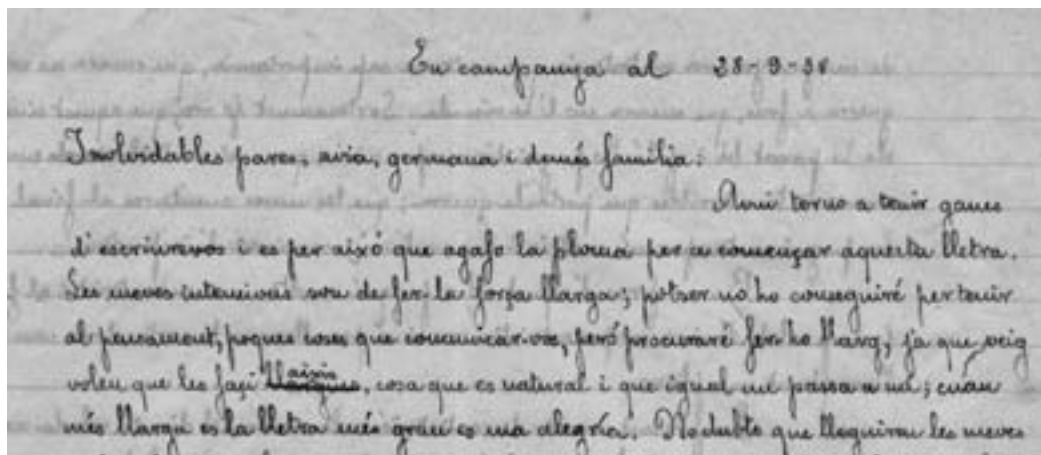 En campanya al 28-9-38
Inolvidables pares, avia, germana i demés familia:
Avui torno a tenir ganes
d'escriurevos i es per aixó que agafo la ploma per a començar aquesta lletra.
Les meves intencions son de fer-la força llarga; potser no ho conseguiré per tenir
al pensament, poques coses que comunicar-vos, peró procuraré fer-ho llarg, ja que veig
voleu que les façi aixis, cosa que es natural i que igual me passa a mi; cuan
més llarga es la lletra més gran es ma alegría. No dubto que lleguireu les meves